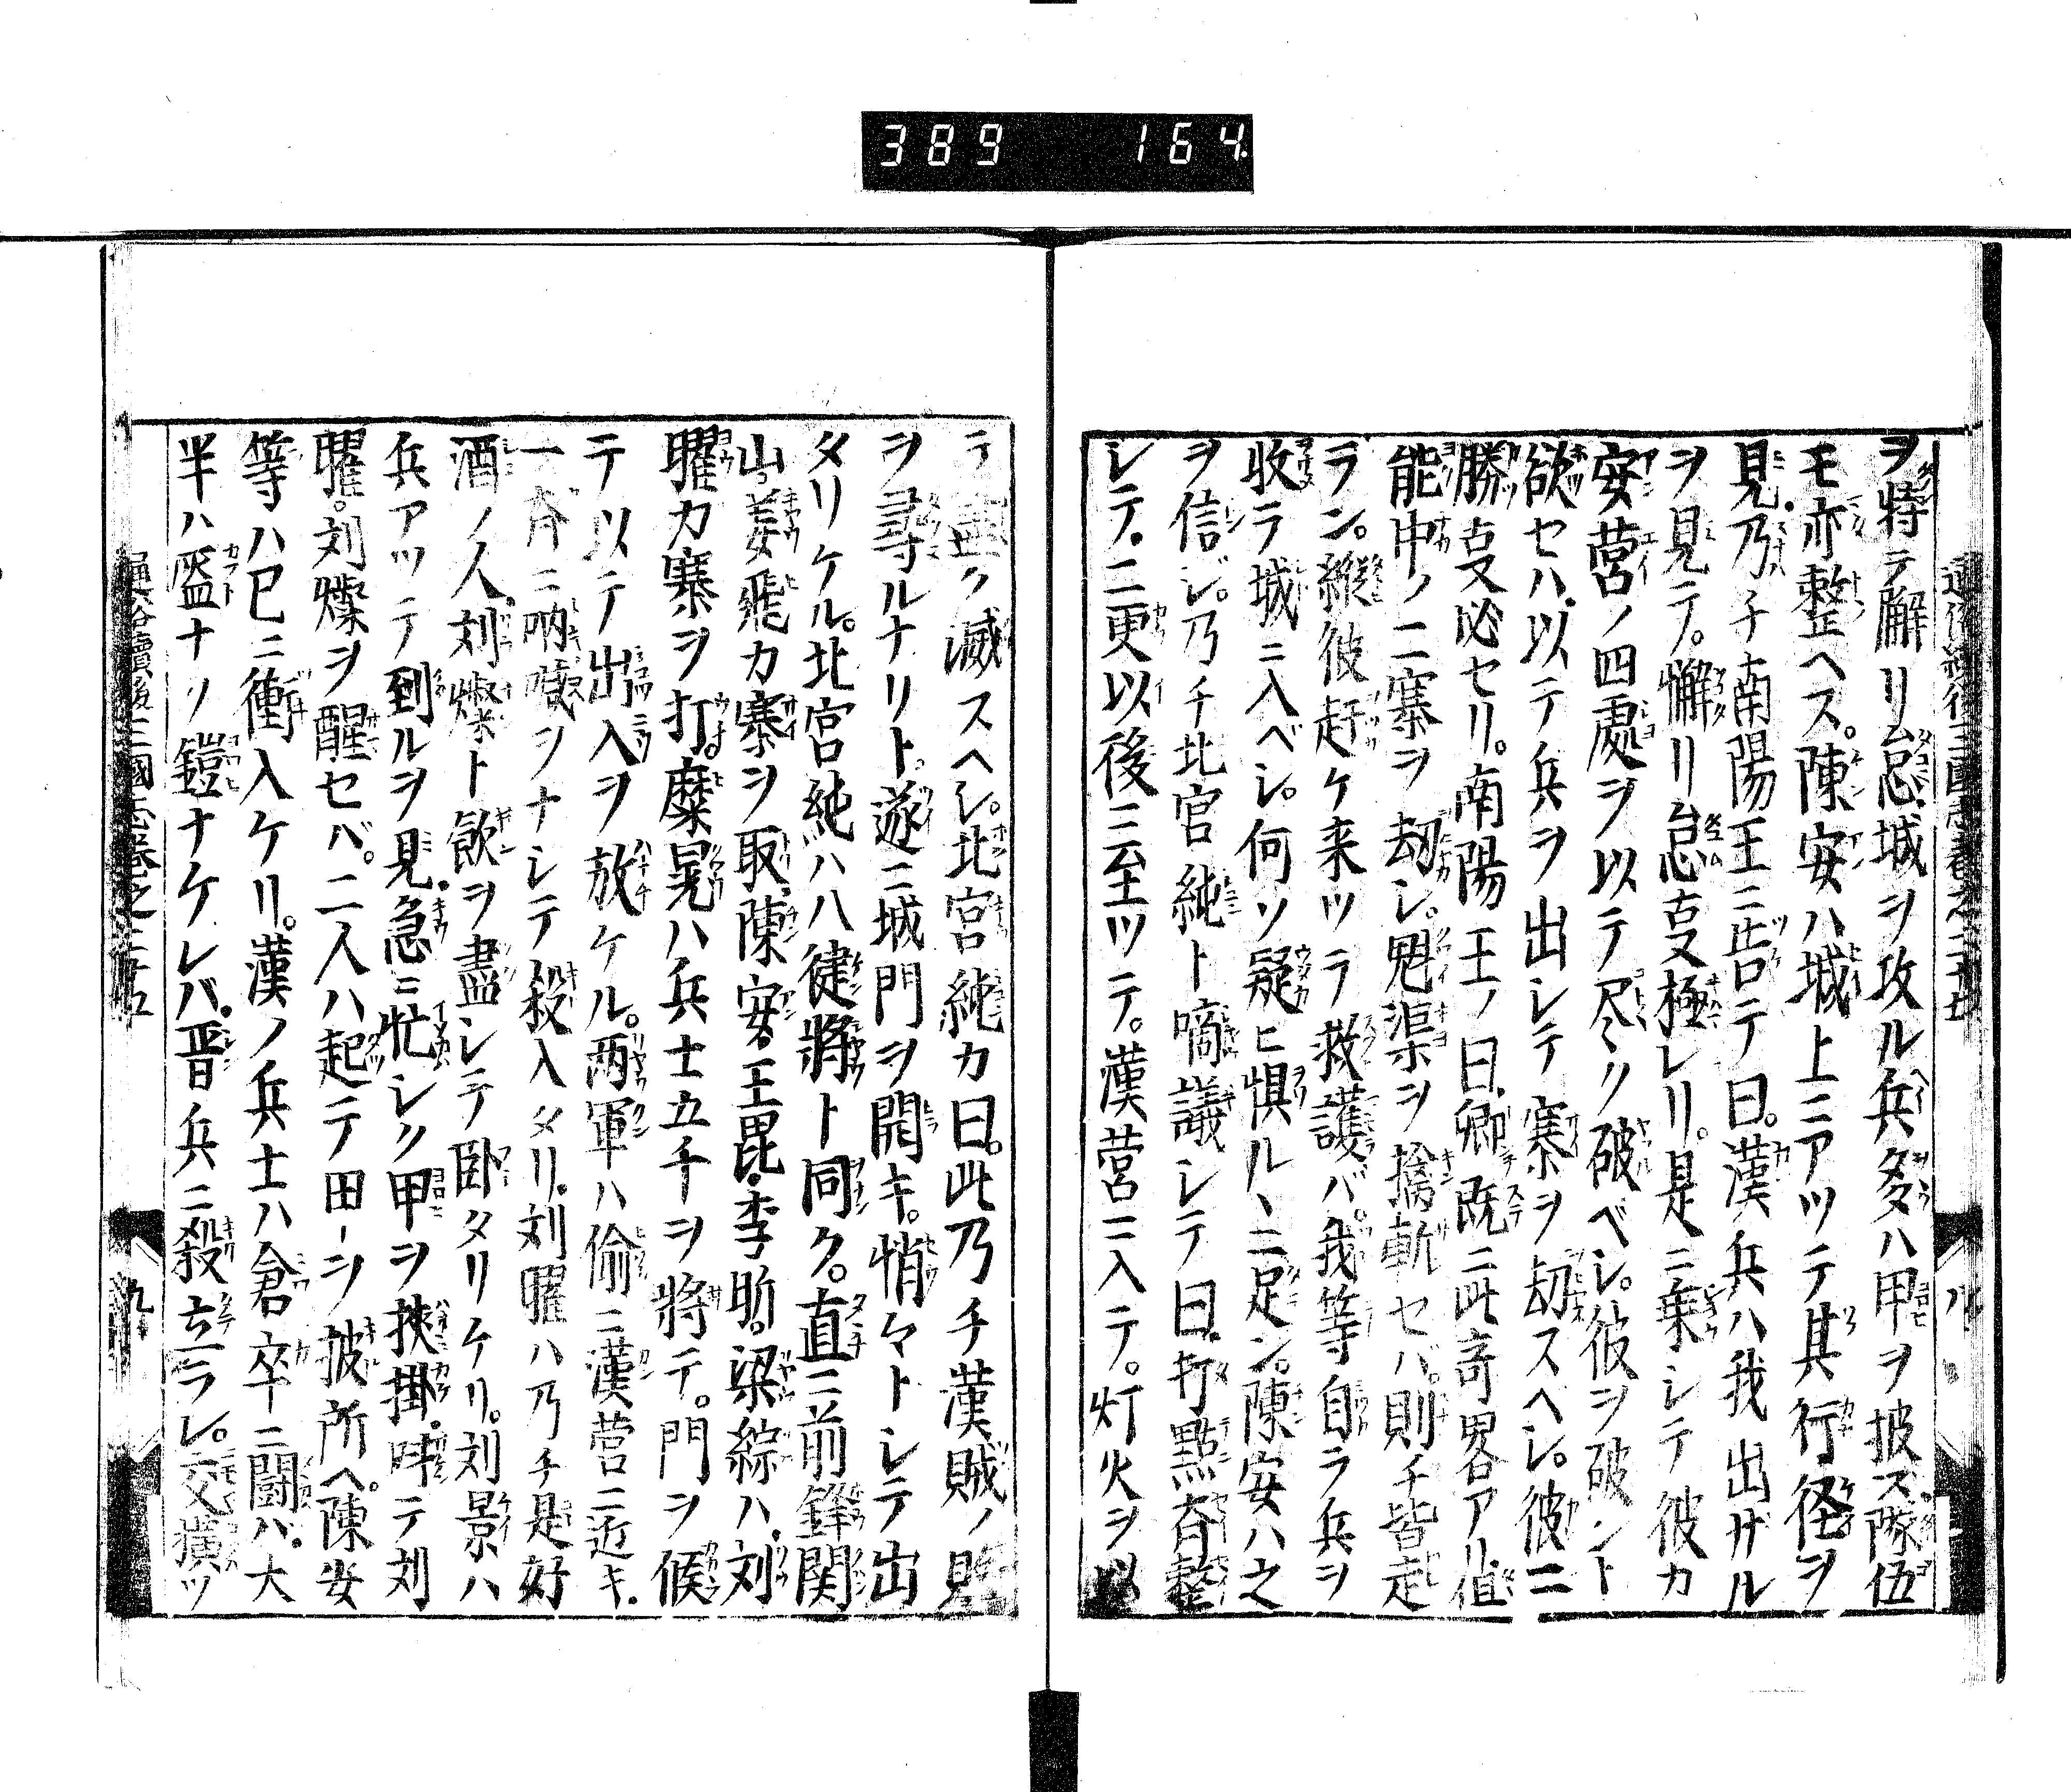 389 164
通俗續後三國志巻之二十五
ヲ特テ觧リ怠城ヲ攻ル兵多ハ甲ヲ披ス隊伍
モ亦整ヘス。陳安ハ城上ニアツテ其行径ヲ
見乃チ南陽王ニ告テ曰。漢兵ハ我出ザル
ヲ見テ。懈リ怠叓極レリ。是ニ乗シテ彼カ
安営ノ四處ヲ以テ尽ク破ベシ。彼ヲ破ント
欲セハ以テ兵ヲ出シテ寨ヲ刧スヘシ。彼ニ
勝叓必セリ。南陽王ノ曰卿既ニ此竒畧アリ值
能中ノ二寨ヲ刧シ。魁渠ヲ擒斬セバ。則チ皆走
ラン。縦彼赶ケ来ツラ救護バ。我等自ラ兵ヲ
收ラ城ニ入ベシ。何ソ疑ヒ惧ルヽニ足ン。陳安ハ之
ヲ信ジ。乃チ北宮純ト啇議シテ曰。打點斉整
シテ。二更以後ニ至ツテ。漢営ニ入テ。灯火ヲ以
テ無ク滅スヘシ。北宮純カ曰。此乃チ漢賊ノ
ヲ尋ルナリト。遂ニ城門ヲ開キ。悄々トシテ出
タリケル。北宮純ハ八徤將ト同ク。直ニ前鋒関
山。姜飛カ寨ヲ取。陳安。王毘。李昕。梁綜ハ。刘
曜カ寨ヲ打。糜晃ハ兵士五千ヲ將テ。門ヲ候
テ以テ出入ヲ放ケル。两軍ハ偷ニ漢営ニ近キ。
一斉ニ吶喊ヲナシテ殺入タリ。刘曜ハ乃チ是好
酒ノ人。刘燦ト飲ヲ盡シテ卧タリケリ。刘景ハ
兵アツテ到ルヲ見。急ニ忙シク甲ヲ挾掛。呌テ刘
曜。刘燦ヲ醒セバ。二人ハ起テ甲ヲ披所ヘ。陳安
等ハ已ニ衝入ケリ。漢ノ兵士ハ倉卒ニ闘バ。大
半ハ盔ナク鎧ナケレバ。晋兵ニ殺立ラレ。交横ツ
通俗續後三國志巻之二十五
九